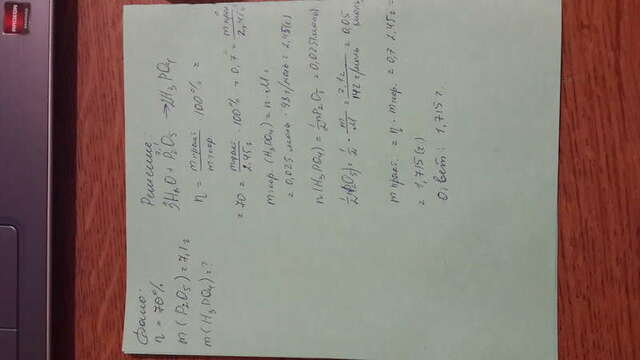 Дано:
η = 70%
m(P₂O₅) = 7,1 г
m(H₃PO₄) = ?
Решение:
3H₂O + P₂O₅ → 2H₃PO₄
η = m практ. / m теор. · 100% =
= 70 = m практ. / 2,45 г · 100% = 0,7 = m практ. / 2,45 г
m теор. (H₃PO₄) = n · M =
= 0,025 моль · 98 г/моль = 2,45 (г)
n(H₃PO₄) = 1/2 n P₂O₅ = 0,025 (моль)
n(P₂O₅) = m / M = 7,1 г / 142 г/моль = 0,05 моль
m практ. = η · m теор. = 0,7 · 2,45 г =
= 1,715 (г)
Ответ: 1,715 г.
RADEON